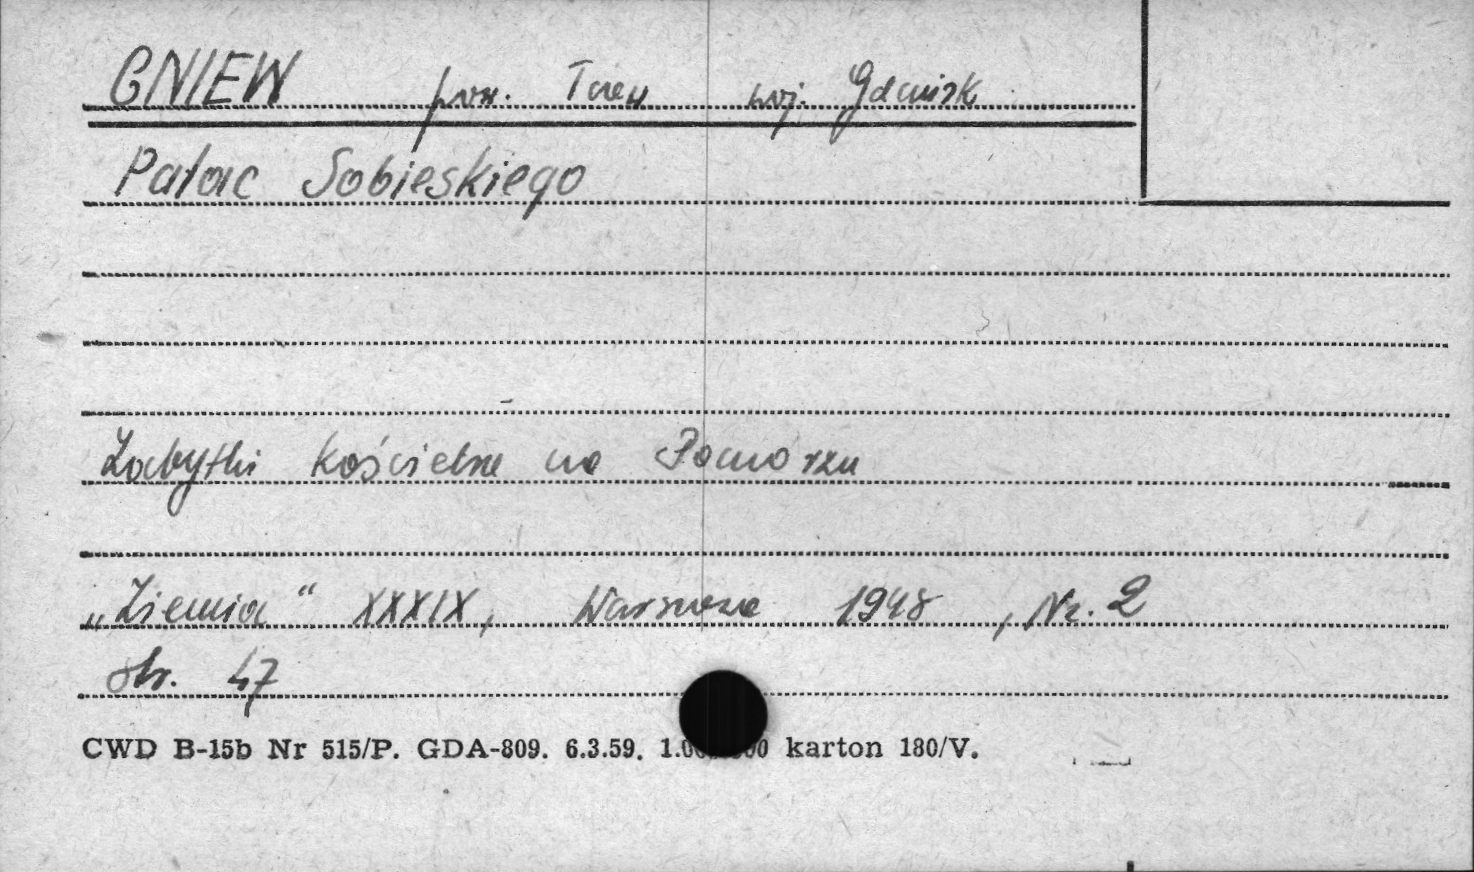 GNIEW pow. Tczew woj. Gdańsk
Pałac Sobieskiego
Zabytki kościelne na Pomorzu
„Ziemia“ XXXIX, Warszawa 1948, Nr. 2
str. 47
CWD B-15b Nr 515/P. GDA-809. 6.3.59. karton 180/V.